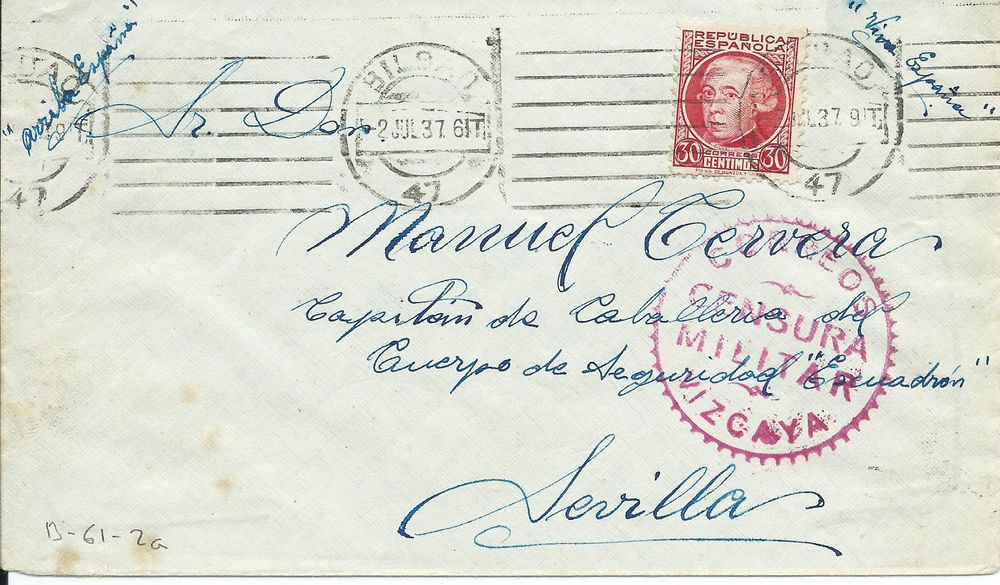 "Arriba España"
"Viva España"
BILBAO
2 JUL 37 6 T
47
BAO
UL 37 9 T
47
47
REPÚBLICA
ESPAÑOLA
CORREOS
30 CENTIMOS 30
Sr. Don
Manuel Cervera
Capitán de Caballeria del
Cuerpo de Seguridad "Escuadrón"
Sevilla
CORREOS
CENSURA
MILITAR
VIZCAYA
B-61-2a